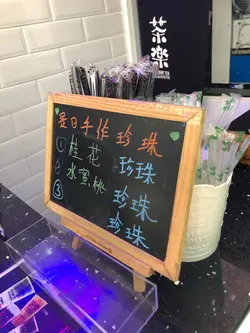 茶樂
是日手作珍珠
① 桂花 珍珠
② 水蜜桃 珍珠
③ 珍珠